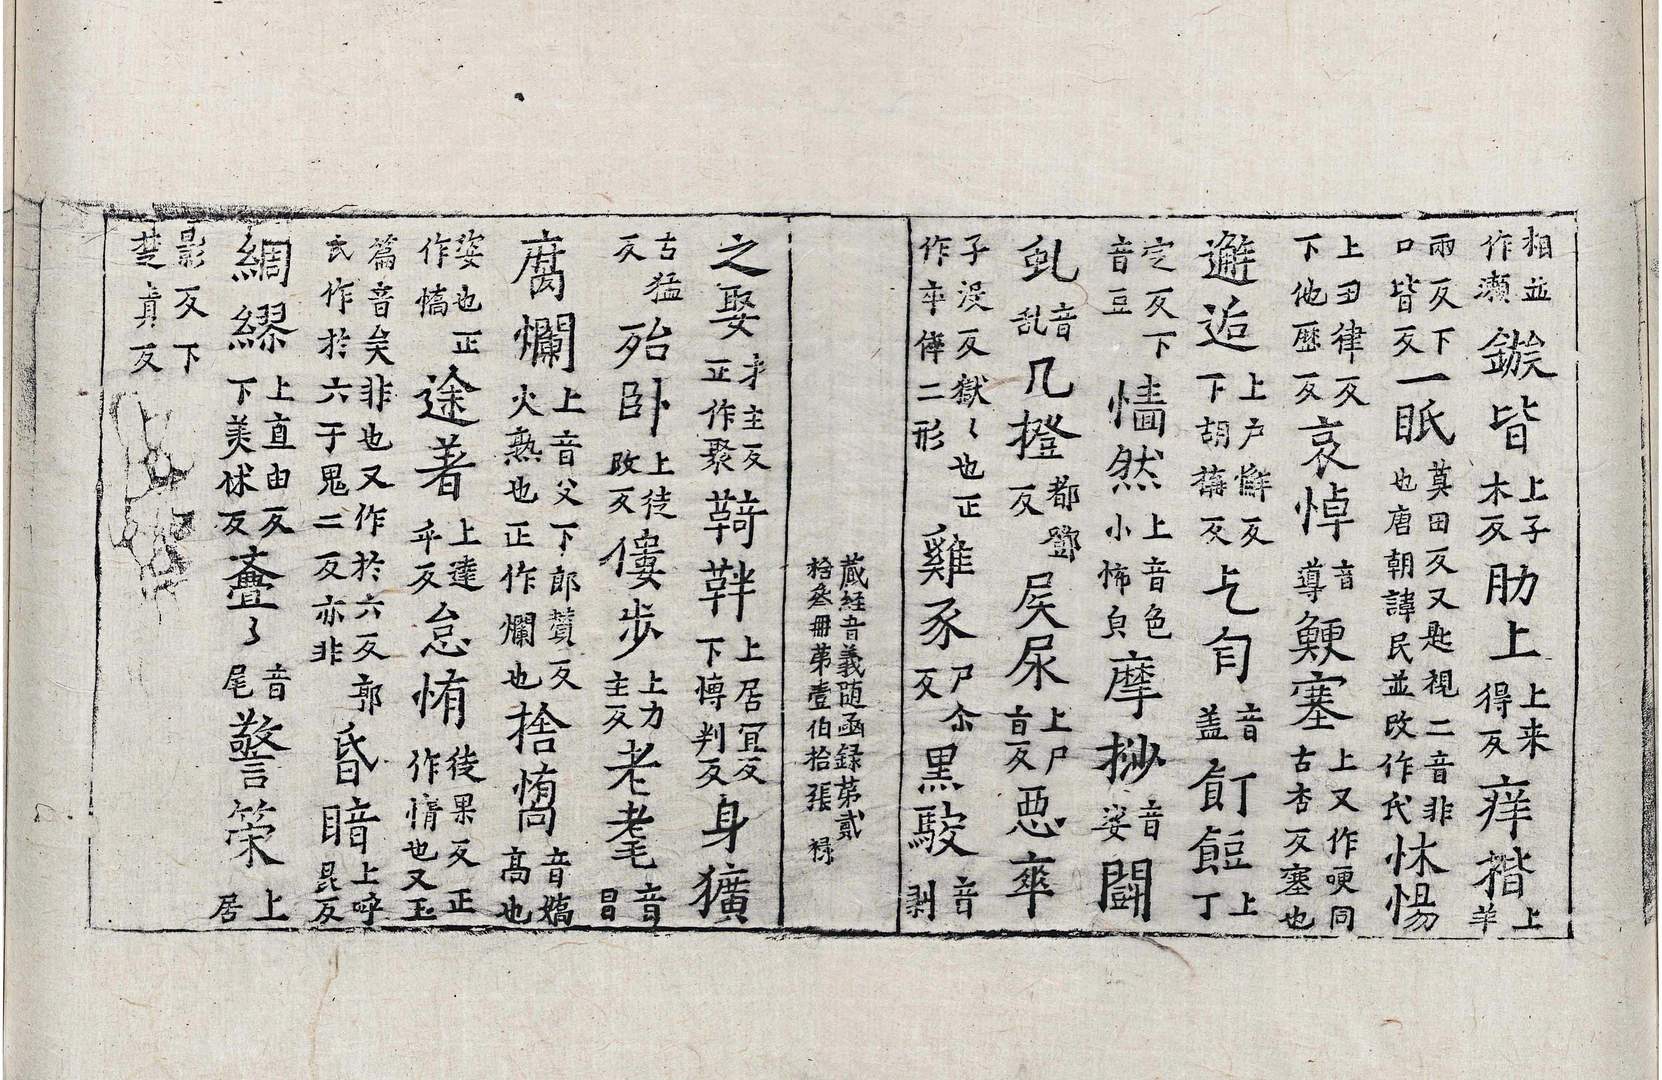 相並作瀬鏃皆上子木反肋上上来得反痒揩上羊
兩反下口皆反一眂莫田反又匙視二音非也唐朝諱民並改作氏怵惕
上丑律反下他歷反哀悼音導鯁塞上又作哽同古杏反塞也
邂逅上户懈反下胡搆反乞匄音盖飣餖上丁
定反下音豆懎然上音色小怖皃摩挱音娑闘
虬音乱几橙都鄧反屎尿上尸旨反惡率
子没反獄〻也正作卒倅二形雞豕尸尒反黒駮音剥
蔵経音義随函録第貳
拾叄冊第壹伯拾張 禄
之娶才主反正作聚䩭靽上居冝反下愽判反身獷
古猛反殆卧上徒改反僂步上力主反老耄音冒
腐爛上音父下郎贊反火熟也正作爛也捨㥄音嫞高也
娑也正作憍途著上達乎反怠㤢徒果反正作惰也又玉
篇音矣非也又作於六反郭氏作於六于鬼二反亦非昏暗上呼昆反
綢繆上直由反下美休反亹〻音尾警策上居
影反下楚責反